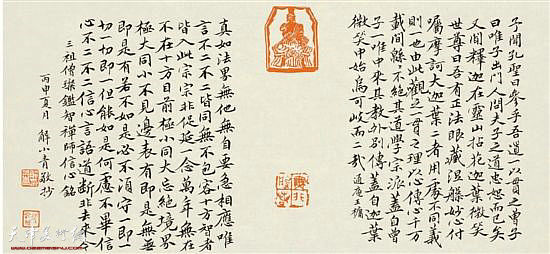 子聞孔聖曰參乎吾道一以貫之曾子
曰唯子出門人問夫子之道忠恕而已矣
又聞釋迦在靈山拈花迦葉微笑
世尊曰吾有正法眼藏涅槃妙心付
囑摩訶大迦葉二者用處不同義
則一也由此觀之一貫之理以傳心千万
載間綿不絕其道學宗派蓋自曾
子一唯中來其教外別傳蓋自迦葉
微笑中始焉可岐而二哉
真如法界無他無自要急相應唯
言不二不二皆同無不包容十方智者
皆入此宗宗非促延一念萬年無在
不在十方目前極小同大忘絕境界
極大同小不見邊表有即是無無
即是有若不如是必不須守一即一
切一切即一但能如是何慮不畢信
心不二不二信心言語道斷非去來今
三祖傳璨鑑智禪師信心銘
丙申夏月 解小青敬抄